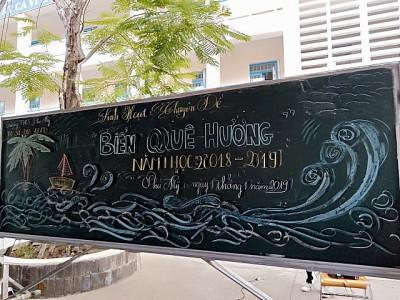 Sinh Hoạt Chuyên Đề
BIỂN QUÊ HƯƠNG
NĂM HỌC 2018-2019
Phú Mỹ, ngày tháng 1 năm 2019